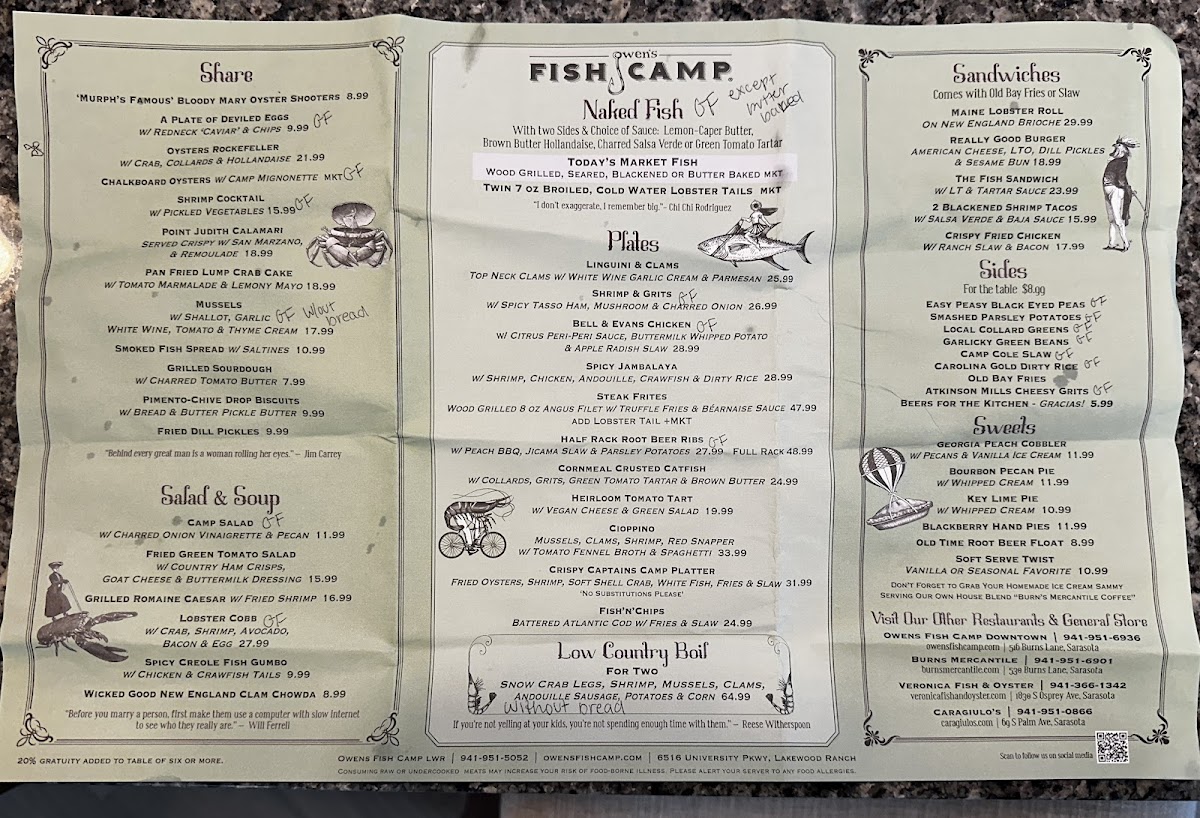 Share
'Murph's Famous' Bloody Mary Oyster Shooters 8.99
A Plate of Deviled Eggs
w/ Redneck 'Caviar' & Chips 9.99 GF
Oysters Rockefeller
w/ Crab, Collards & Hollandaise 21.99
Chalkboard Oysters w/ Camp Mignonette MKT GF
Shrimp Cocktail
w/ Pickled Vegetables 15.99 GF
Point Judith Calamari
Served Crispy w/ San Marzano,
& Remoulade 18.99
Pan Fried Lump Crab Cake
w/ Tomato Marmalade & Lemony Mayo 18.99
Mussels
w/ Shallot, Garlic GF w/out bread
White Wine, Tomato & Thyme Cream 17.99
Smoked Fish Spread w/ Saltines 10.99
Grilled Sourdough
w/ Charred Tomato Butter 7.99
Pimento-Chive Drop Biscuits
w/ Bread & Butter Pickle Butter 9.99
Fried Dill Pickles 9.99
"Behind every great man is a woman rolling her eyes." – Jim Carrey
Salad & Soup
Camp Salad GF
w/ Charred Onion Vinaigrette & Pecan 11.99
Fried Green Tomato Salad
w/ Country Ham Crisps,
Goat Cheese & Buttermilk Dressing 15.99
Grilled Romaine Caesar w/ Fried Shrimp 16.99
Lobster Cobb GF
w/ Crab, Shrimp, Avocado,
Bacon & Egg 27.99
Spicy Creole Fish Gumbo
w/ Chicken & Crawfish Tails 9.99
Wicked Good New England Clam Chowda 8.99
"Before you marry a person, first make them use a computer with slow Internet
to see who they really are." – Will Ferrell
20% gratuity added to table of six or more.
Owen's
FISH CAMP
Naked Fish GF except butter baked
With two Sides & Choice of Sauce: Lemon-Caper Butter,
Brown Butter Hollandaise, Charred Salsa Verde or Green Tomato Tartar
Today's Market Fish
Wood Grilled, Seared, Blackened or Butter Baked MKT
Twin 7 oz Broiled, Cold Water Lobster Tails MKT
"I don't exaggerate, I remember big."- Chi Chi Rodriguez
Plates
Linguini & Clams
Top Neck Clams w/ White Wine Garlic Cream & Parmesan 25.99
Shrimp & Grits GF
w/ Spicy Tasso Ham, Mushroom & Charred Onion 26.99
Bell & Evans Chicken GF
w/ Citrus Peri-Peri Sauce, Buttermilk Whipped Potato
& Apple Radish Slaw 28.99
Spicy Jambalaya
w/ Shrimp, Chicken, Andouille, Crawfish & Dirty Rice 28.99
Steak Frites
Wood Grilled 8 oz Angus Filet w/ Truffle Fries & Béarnaise Sauce 47.99
add Lobster Tail +MKT
Half Rack Root Beer Ribs GF
w/ Peach BBQ, Jicama Slaw & Parsley Potatoes 27.99 Full Rack 48.99
Cornmeal Crusted Catfish
w/ Collards, Grits, Green Tomato Tartar & Brown Butter 24.99
Heirloom Tomato Tart
w/ Vegan Cheese & Green Salad 19.99
Cioppino
Mussels, Clams, Shrimp, Red Snapper
w/ Tomato Fennel Broth & Spaghetti 33.99
Crispy Captains Camp Platter
Fried Oysters, Shrimp, Soft Shell Crab, White Fish, Fries & Slaw 31.99
'No Substitutions Please'
Fish'n'Chips
Battered Atlantic Cod w/ Fries & Slaw 24.99
Low Country Boil
For Two
Snow Crab Legs, Shrimp, Mussels, Clams,
Andouille Sausage, Potatoes & Corn 64.99
without bread
If you're not yelling at your kids, you're not spending enough time with them." – Reese Witherspoon
Owens Fish Camp LWR | 941-951-5052 | owensfishcamp.com | 6516 University Pkwy, Lakewood Ranch
Consuming raw or undercooked meats may increase your risk of food-borne illness. Please alert your server to any food allergies.
Sandwiches
Comes with Old Bay Fries or Slaw
Maine Lobster Roll
on New England Brioche 29.99
Really Good Burger
American Cheese, LTO, Dill Pickles
& Sesame Bun 18.99
The Fish Sandwich
w/ LT & Tartar Sauce 23.99
2 Blackened Shrimp Tacos
w/ Salsa Verde & Baja Sauce 15.99
Crispy Fried Chicken
w/ Ranch Slaw & Bacon 17.99
Sides
For the table $8.99
Easy Peasy Black Eyed Peas GF
Smashed Parsley Potatoes GF
Local Collard Greens GF
Garlicky Green Beans GF
Camp Cole Slaw GF
Carolina Gold Dirty Rice GF
Old Bay Fries
Atkinson Mills Cheesy Grits GF
Beers for the Kitchen - Gracias! 5.99
Sweets
Georgia Peach Cobbler
w/ Pecans & Vanilla Ice Cream 11.99
Bourbon Pecan Pie
w/ Whipped Cream 11.99
Key Lime Pie
w/ Whipped Cream 10.99
Blackberry Hand Pies 11.99
Old Time Root Beer Float 8.99
Soft Serve Twist
Vanilla or Seasonal Favorite 10.99
Don't Forget to Grab Your Homemade Ice Cream Sammy
Serving Our Own House Blend "Burn's Mercantile Coffee"
Visit Our Other Restaurants & General Store
Owens Fish Camp Downtown | 941-951-6936
owensfishcamp.com | 516 Burns Lane, Sarasota
Burns Mercantile | 941-951-6901
burnsmercantile.com | 539 Burns Lane, Sarasota
Veronica Fish & Oyster | 941-366-1342
veronicafishandoyster.com | 1830 S Osprey Ave, Sarasota
Caragiulo's | 941-951-0866
caragiulos.com | 69 S Palm Ave, Sarasota
Scan to follow us on social media